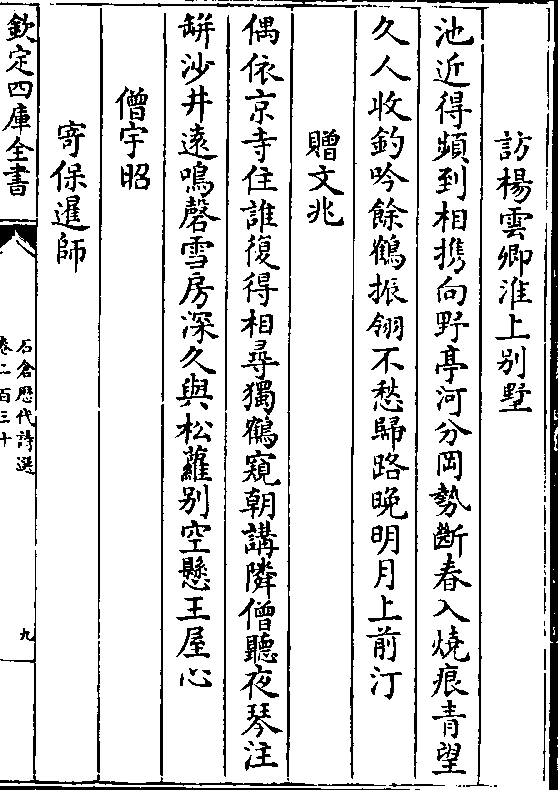 訪楊雲卿淮上别墅
池近得頻到相携向野亭河分岡勢斷春入燒痕青望
久人收釣吟餘鶴振翎不愁歸路晚明月上前汀
贈文兆
偶依京寺住誰復得相尋獨鶴窺朝講隣僧聽夜琴注
缾沙井遠鳴磬雪房深久與松蘿别空懸王屋心
僧宇昭
寄保暹師
欽定四庫全書
石倉歷代詩選
卷二百三十
九